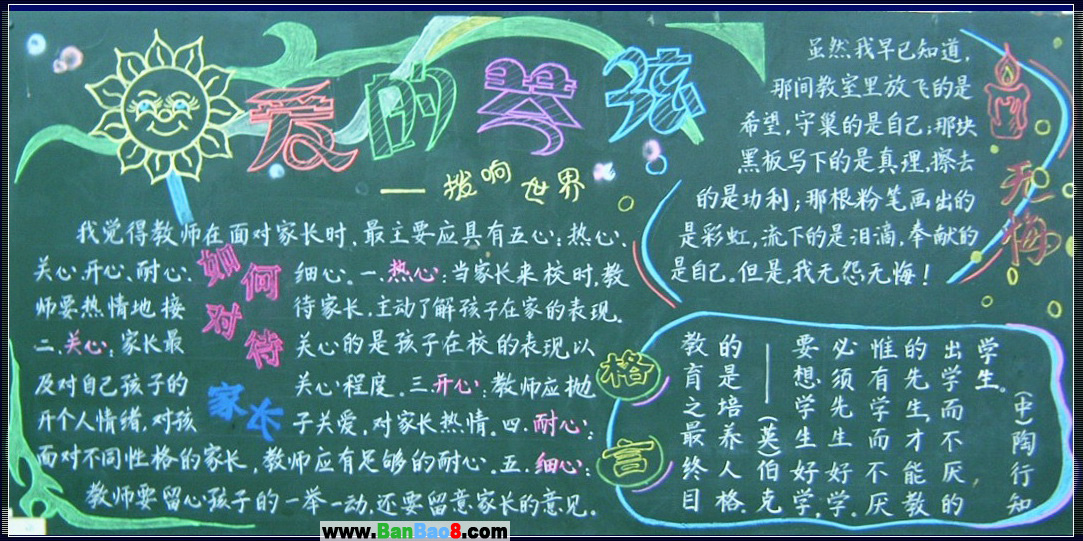 爱的琴弦
——拨响世界
我觉得教师在面对家长时,最主要应具有五心:热心、
关心、开心、耐心、细心。一.热心:当家长来校时,教
师要热情地接待家长,主动了解孩子在家的表现。
二.关心:家长最关心的是孩子在校的表现以
及对自己孩子的关心程度。三.开心:教师应抛
开个人情绪,对孩子关爱,对家长热情。四.耐心:
面对不同性格的家长,教师应有足够的耐心。五.细心:
教师要留心孩子的一举一动,还要留意家长的意见。
如何
对待
家长
虽然我早已知道,
那间教室里放飞的是
希望,守巢的是自己;那块
黑板写下的是真理,擦去
的是功利;那根粉笔画出的
是彩虹,流下的是泪滴,奉献的
是自己。但是,我无怨,无悔!
无悔
格言
教育之最终目
的是培养人格。
——(英)伯克
要想学生好学,
必须先生好学。
惟有学而不厌
的先生,才能教
出学而不厌的
学生。
(中)陶行知
www.BanBao8.com